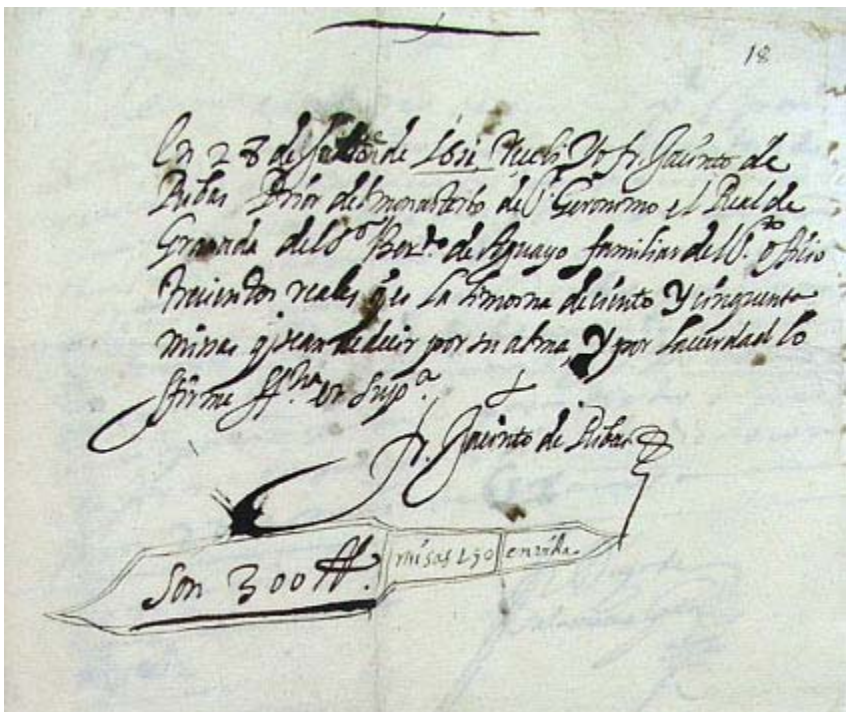 18
En 28 de de Recebi Yo fr. Jacinto de
Ribas Prior del monasterio de S. Geronimo el Real de
Granada del Ber.do de Aguayo familiar del S.to offiçio
Trecientos reales q es la limosna de ciento Y cinquenta
misas q sean de decir por su alma, Y por la uerdad lo
firme ff.ha en Sup.a
fr. Jacinto de Ribas
Son 300 misas 150 en vida